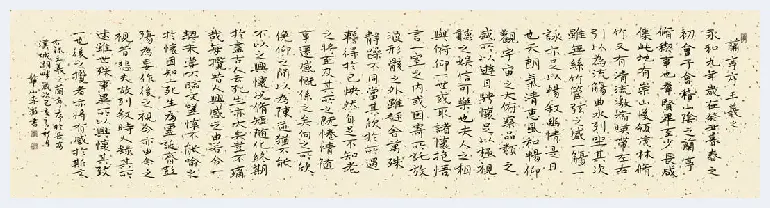 蘭亭序 王羲之
永和九年歲在癸丑暮春之
初會于會稽山陰之蘭亭
脩稧事也羣賢畢至少長咸
集此地有崇山峻領茂林脩
竹又有清流激湍暎帶左右
引以為流觴曲水列坐其次
雖無絲竹管弦之盛一觴一
詠亦足以暢敘幽情是日
也天朗氣清惠風和暢仰
觀宇宙之大俯察品類之
盛所以遊目騁懷足以極視
聽之娛信可樂也夫人之相
與俯仰一世或取諸懷抱悟
言一室之內或因寄所託放
浪形骸之外雖趣舍萬殊
靜躁不同當其欣於所遇
暫得於己快然自足不知老
之將至及其所之既倦情隨
事遷感慨係之矣向之所欣
俛仰之間以為陳跡猶不能
不以之興懷況脩短隨化終期
於盡古人云死生亦大矣豈不痛
哉每攬昔人興感之由若合一
契未嘗不臨文嗟悼不能喻之
於懷固知死生為虛誕齊彭
殤為妄作後之視今亦由今之
視昔悲夫故列敘時人錄其所
述雖世殊事異所以興懷其致
一也後之攬者亦將有感於斯文
王羲之蘭亭序於
漢城湖畔歲次
華山書